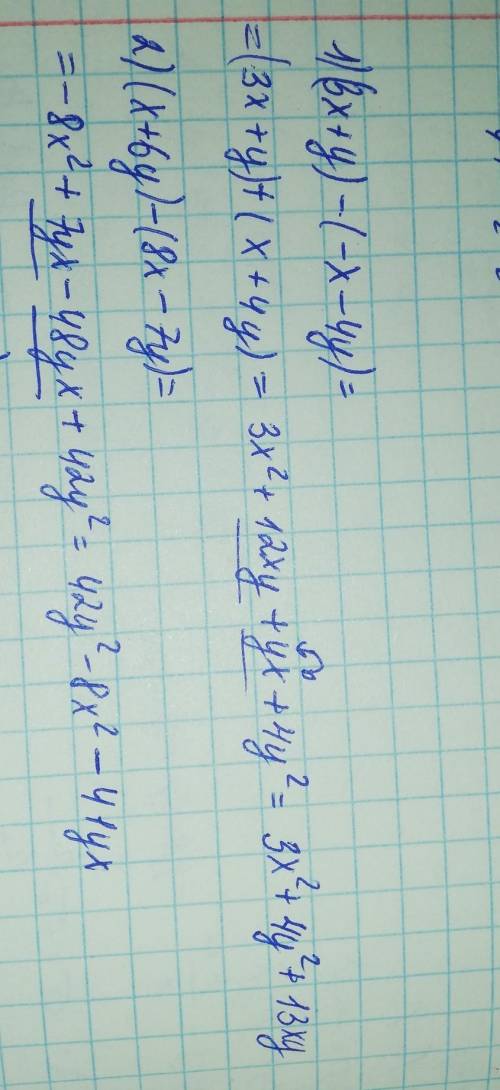 1)(6x+y)-(-x-4y)=
=(3x+y)+(x+4y)=3x²+12xy+yx+4y²=3x²+4y²+13xy
2)(x+6y)-(8x-7y)=
=-8x²+7yx-48yx+42y²=42y²-8x²-41yx